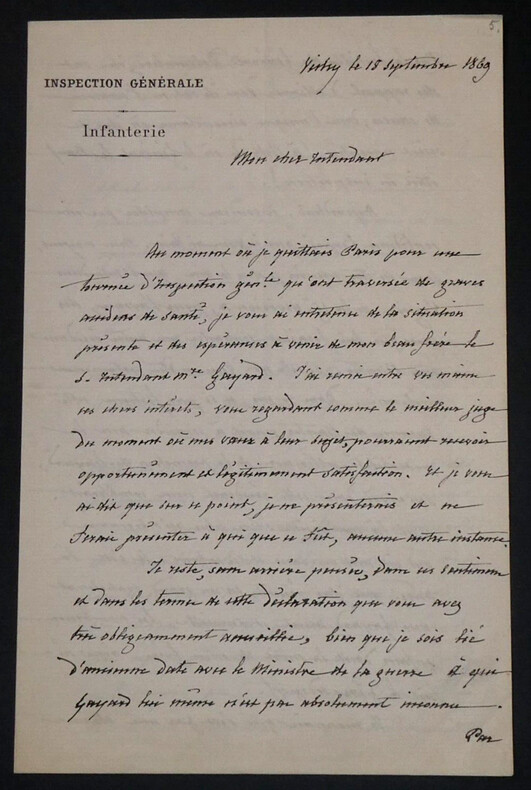 5.
Vichy le 18 Septembre 1869
INSPECTION GÉNÉRALE
Infanterie
Mon cher Intendant
Au moment où je quittais Paris pour une
tournée d'Inspection gén.le qu'ont traversée de graves
accidens de santé, je vous ai entretenu de la situation
présente et des espérances à venir de mon beau frère le
S. Intendant m.re Gayard. J'ai remis entre vos mains
ces chers intérêts, vous regardant comme le meilleur juge
du moment où mes vœux à leur sujet, pourraient recevoir
opportunément et légitimement satisfaction. Et je vous
ai dit que sur ce point, je ne présenterais et ne
ferais présenter à qui que ce fût, aucune autre instance.
Je reste, sans arrière pensée, dans ces sentimens
et dans les termes de cette déclaration que vous avez
très obligeamment accueillie, bien que je sois lié
d'ancienne date avec le Ministre de la guerre à qui
Gayard lui même n'est pas absolument inconnu.
Par